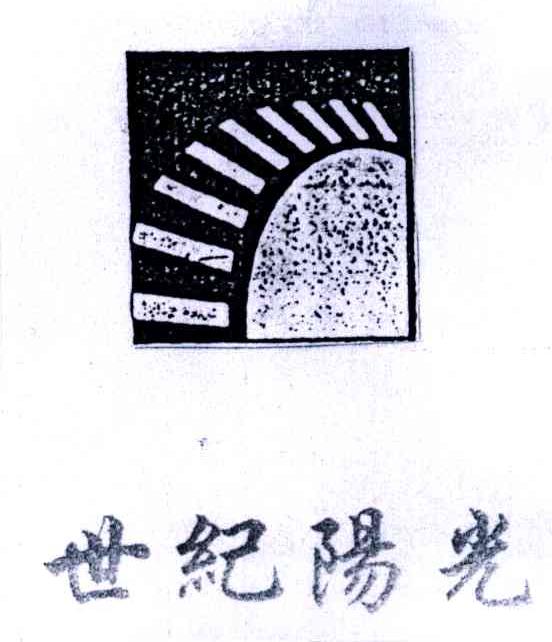 世紀陽光